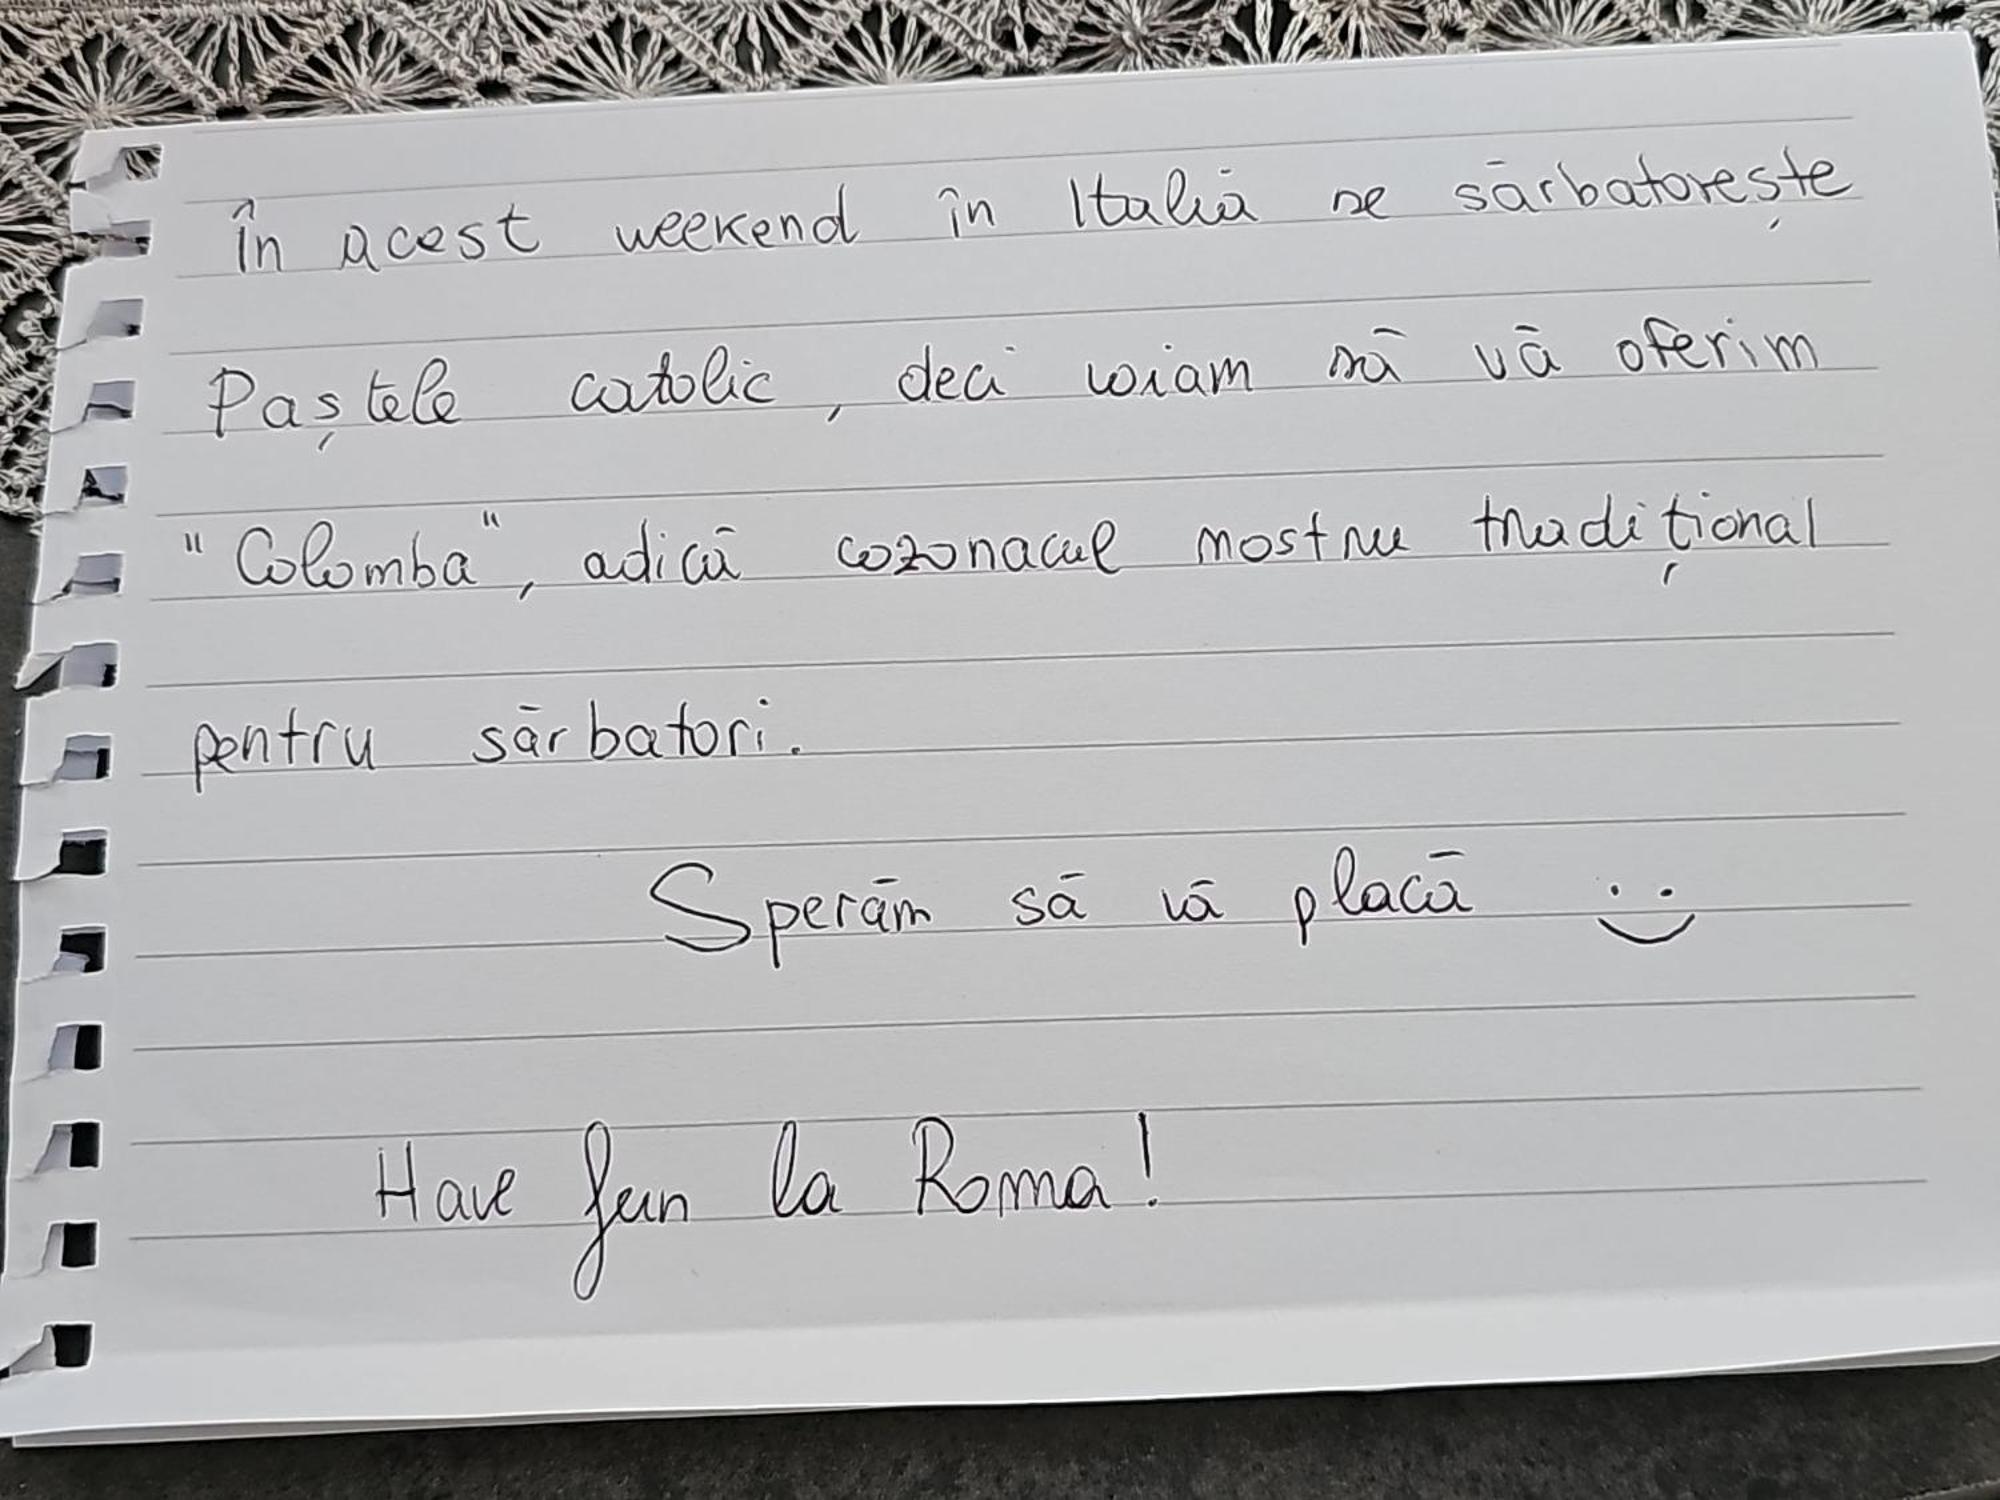 În acest weekend în Italia se sārbatorește
Paștele catolic, deci voiam sā vā oferim
"Colomba", adicā cozonacul nostru tradițional
pentru sārbatori.
Sperām sā vā placā :)
Have fun la Roma!